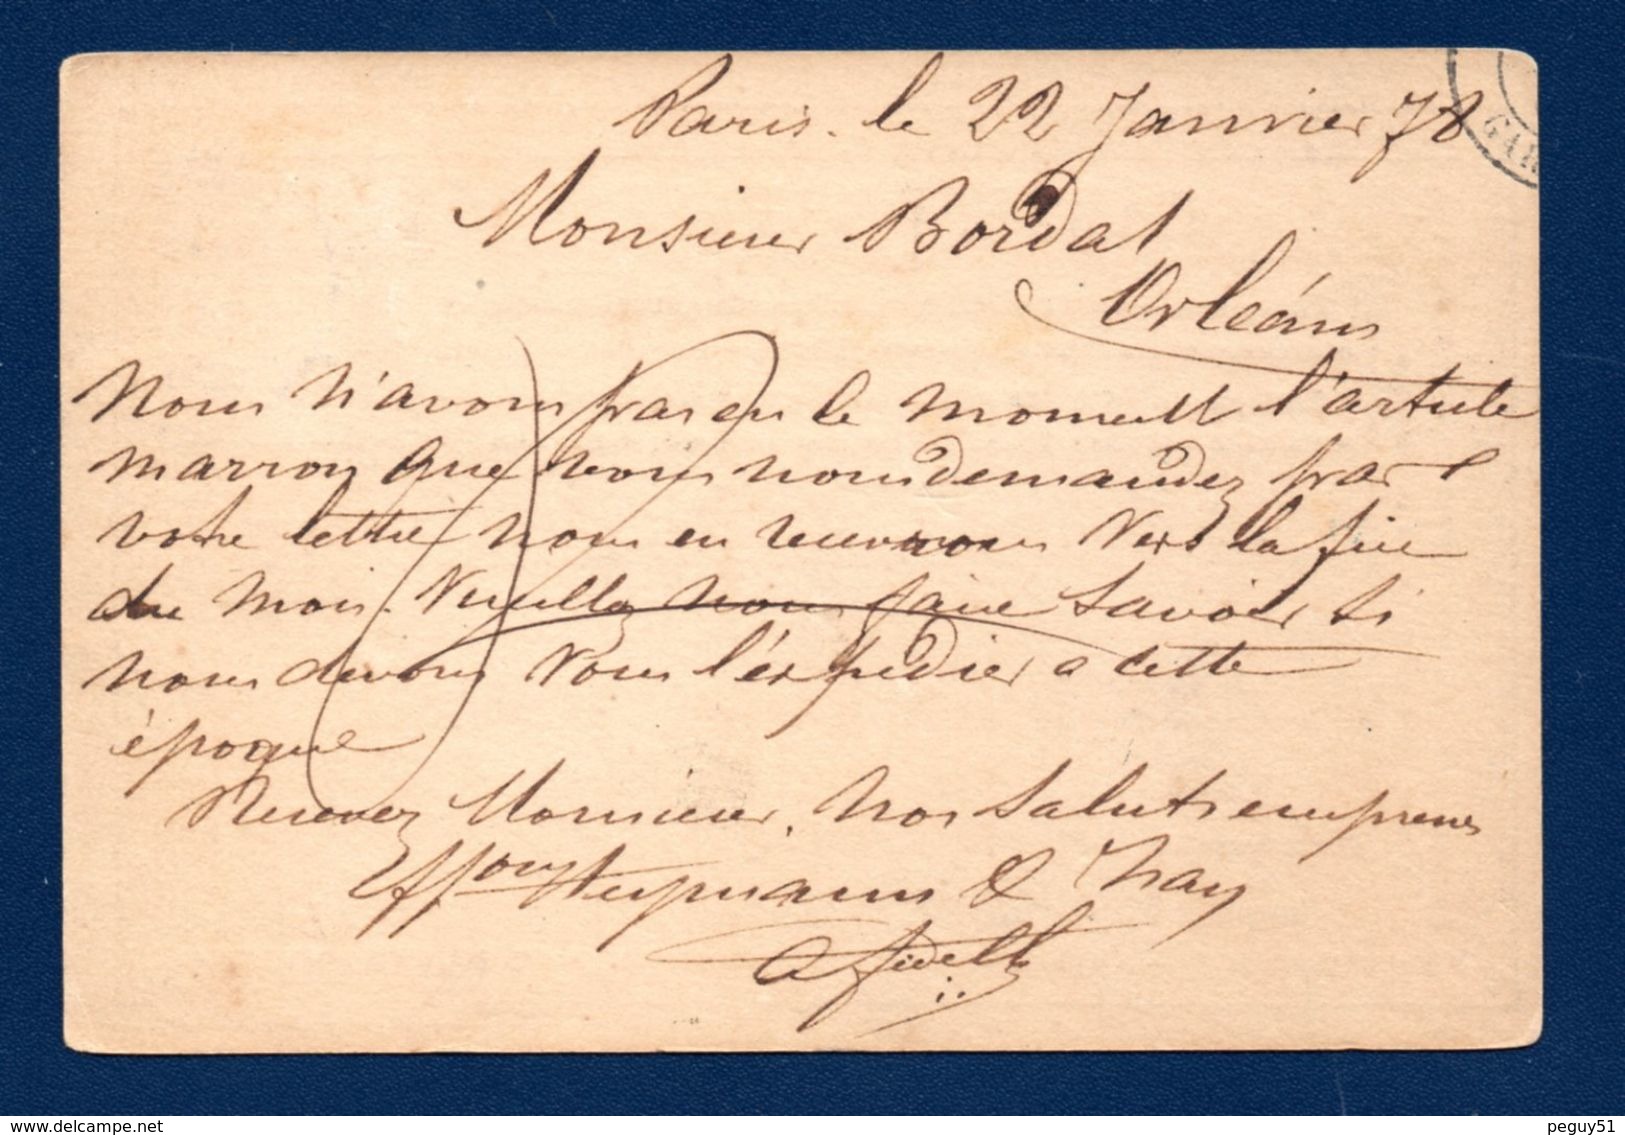 Paris. le 22 Janvier 78
GAR
Monsieur Bordat
Orléans
Nous n'avons pas en le moment l'article
marron que vous nous demandez par
votre lettre nous en recevrons vers la fin
du mois. Veuillez nous faire savoir si
nous devons vous l'expédier a cette
époque
Recevez Monsieur, nos saluts empressés
Heymann & May
www.delcampe.net
peguy51